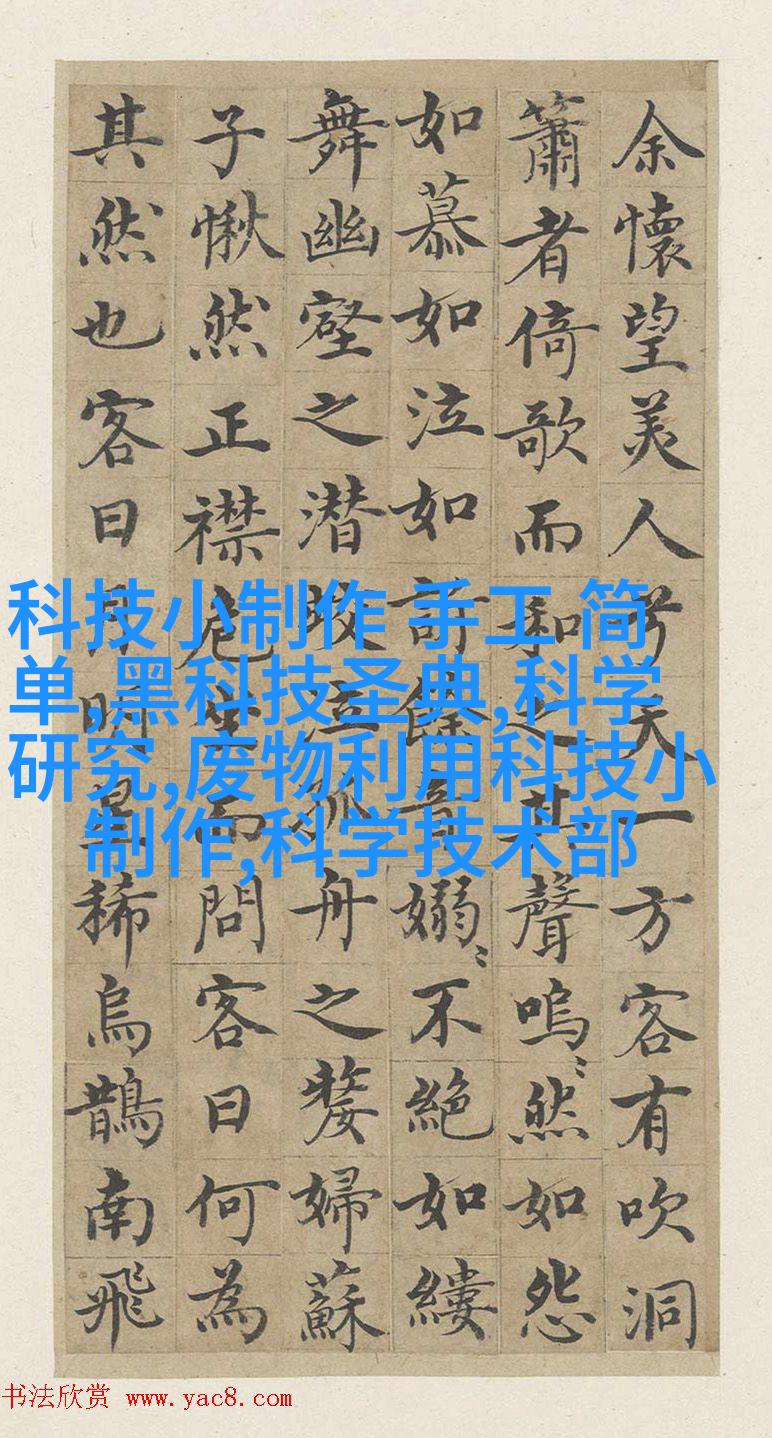 余懷望美人兮天一方客有吹洞
簫者倚歌而和之其聲嗚〻然如怨
如慕如泣如訴餘音嫋〻不絕如縷
舞幽壑之潜蛟泣孤舟之嫠婦蘇
子愀然正襟危坐而問客曰何為
其然也客曰月明星稀烏鵲南飛
科技小制作 手工 简
单,黑科技圣典,科学
研究,废物利用科技小
制作,科学技术部
书法欣赏 www.yac8.com